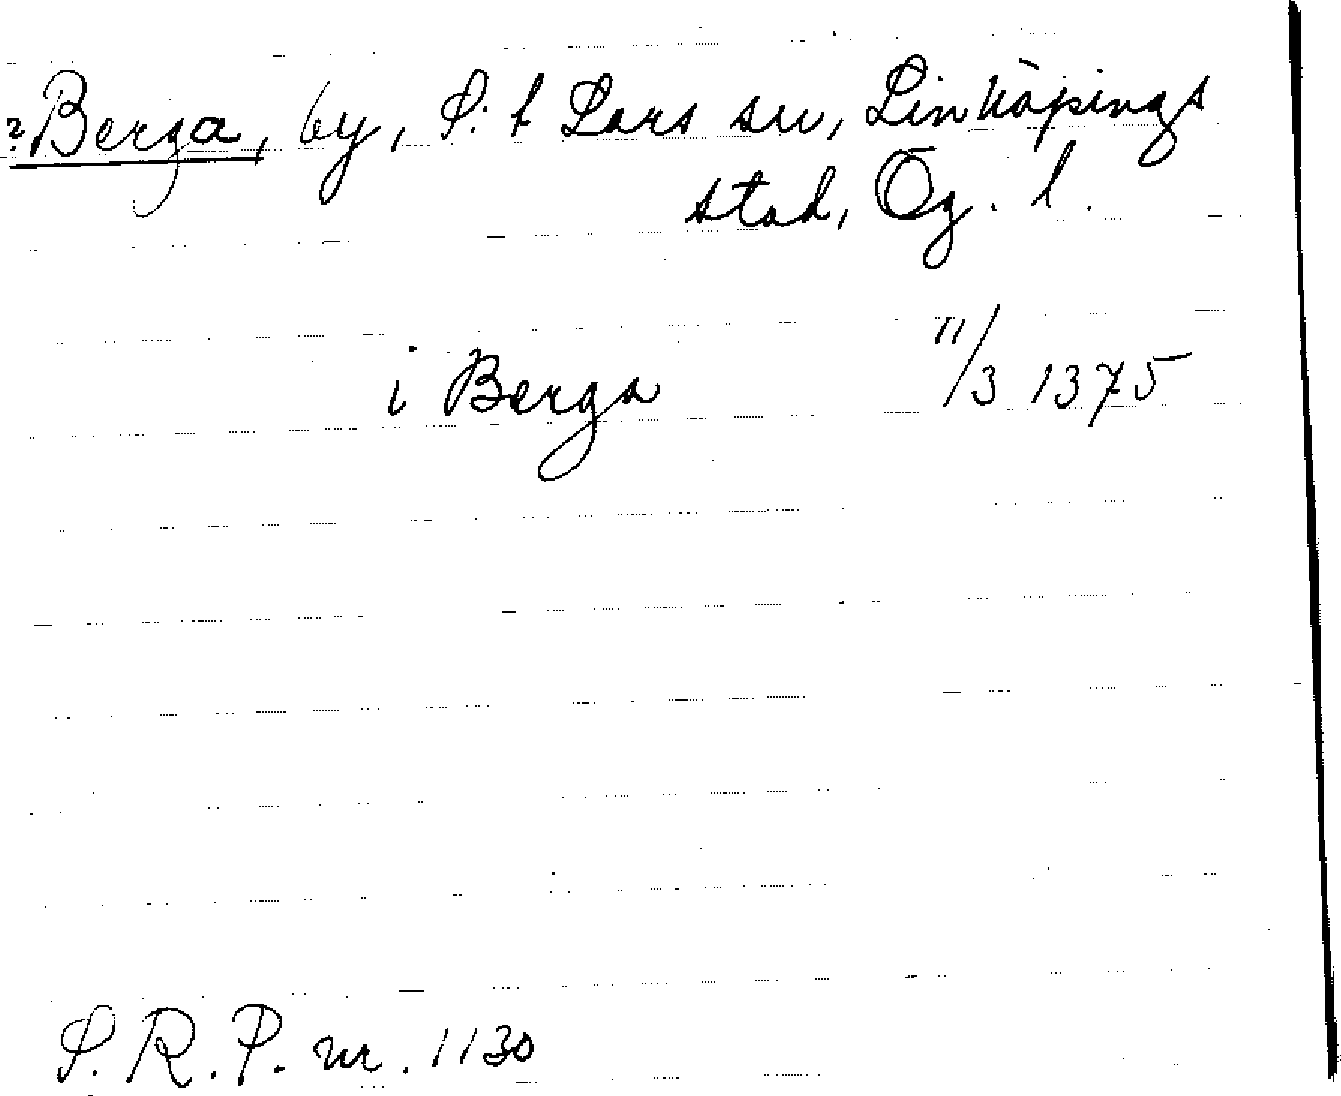 ?Berga, by, S:t Lars sn, Linköpings
stad, Ög. l.
i Berga 11/3 1375
S.R.P. nr. 1130